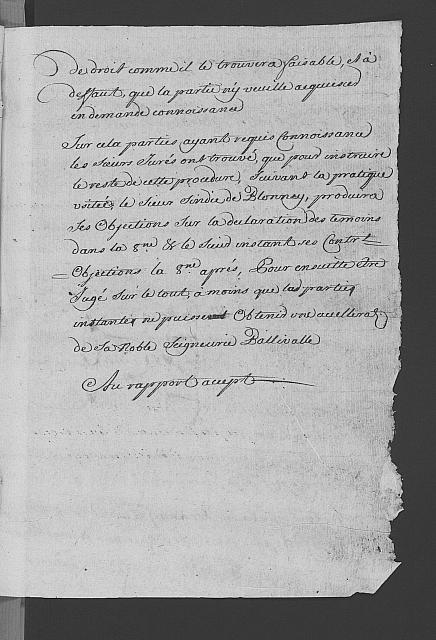 de droit comme il le trouvera faisable, et à
deffaut, que la partie n'y veuille acquiescer
en demande connoissance
Sur cela parties ayant requis Connoissance
les Sieurs Jurés ont trouvé, que pour instruire
le reste de cette procedure, Suivant la pratique
usitée, le Sieur Sindic de Blonney, produira
Ses Objections Sur la declaration des temoins
dans la 8.ne & le Seud instant ses Contr=
=Objections la 8.ne aprés, Pour ensuitte être
Jugé Sur le tout, à moins que la partie
instante ne puisse Obtenir une accellerat.
de Sa Noble Seigneurie Ballivalle
Au rapport accept